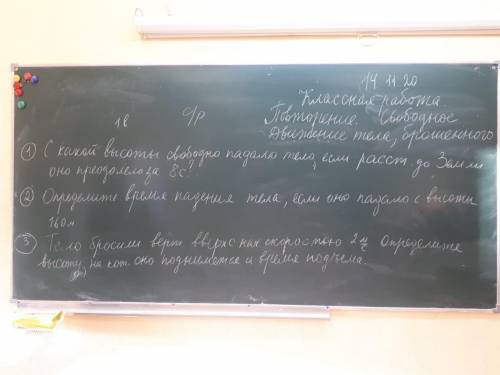 14 11 20
Классная работа
Повторение. Свободное
движение тела, брошенного
1в с/р
① С какой высоты свободно падало тело, если расст до Земли
оно преодолело за 8с?
② Определите время падения тела, если оно падало с высоты
160м.
③ Тело бросили верт вверх с нач скоростью 2 м/с определите
высоту, на кот. оно поднимется и время подъема.